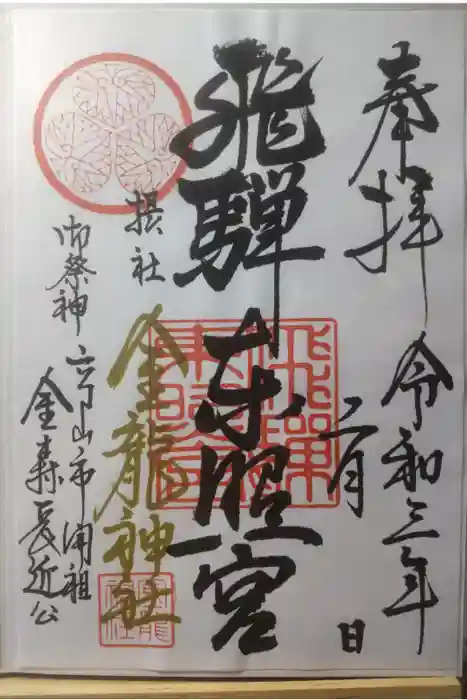 奉拝
令和三年
二月
日
飛騨東照宮
飛騨東照宮
摂社
金龍神社
金龍神社
御祭神
高山市開祖
金森長近公